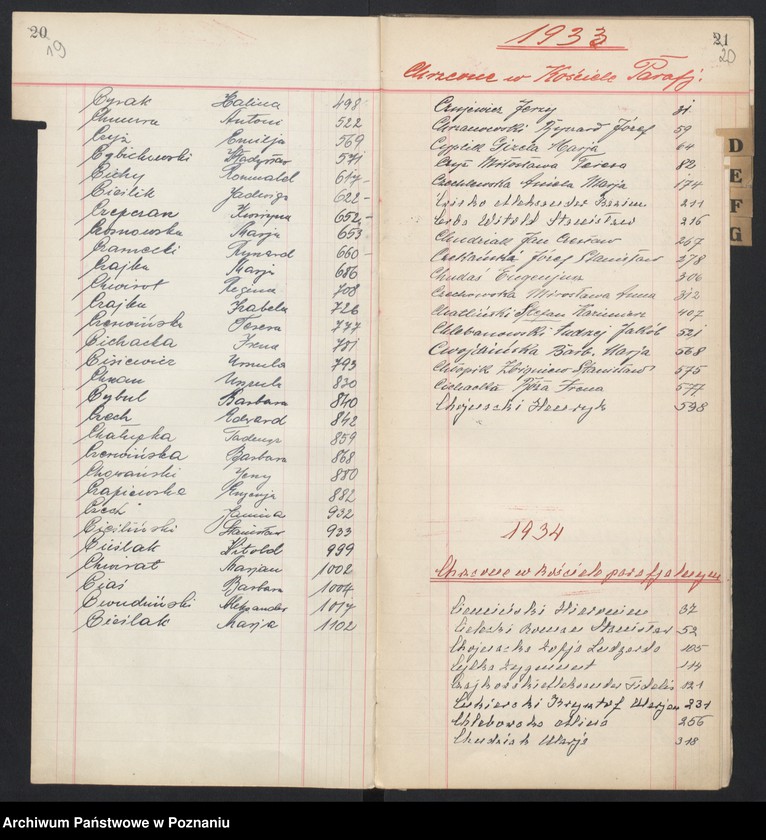 20
19
Cyrak Halina 498
Chmura Antoni 522
Czyż Emilja 569
Cybichowski Władysław 571
Cichy Romuald 617
Cieślik Jadwiga 622
Czepczan 652
Czosnowska Marja 653
Czarnecki Ryszard 660
Czajka Marja 686
Chwirot Regina 708
Czajka Izabela 726
Czerwińska Teresa 777
Cichacka Irena 781
Cisiewicz Urszula 793
Urszula 830
Cybul Barbara 840
Czech Edward 842
Chałupka Tadeusz 859
Czerwińska Barbara 868
Chwański Jerzy 880
Czapiewska Eugenja 882
Czech Janina 932
Cieśliński Stanisław 933
Cieślak Witold 999
Chwirat Marjan 1002
Cjaś Barbara 1004
Cwudziński Aleksander 1014
Cieślak Marja 1102
1933
21
20
Chrzczone w Kościele Parafj.
Czujewicz Jerzy 31
Chrzanowski Ryszard Józef 59
Cyplik Gizela Marja 64
Czyż Mirosława Teresa 82
Czechlewska Aniela Marja 174
Aleksander 211
Witold Stanisław 216
Chudziak Jan Czesław 267
Czekański Józef Stanisław 278
Chudaś Eugenjusz 306
Czechowska Mirosława Anna 312
Stefan Kazimierz 407
Chlebanowski Andrzej Jakób 521
Cwojdzińska Barb. Marja 568
Chłopik Zbigniew Stanisław 575
Cichacka Róża Irena 577
Chojnacki Henryk 598
1934
Chrzczone w kościele parafjalnym
Hieronim 37
Roman Stanisław 52
Chojnacka Zofja Ludgarda 105
Cylka Zygmunt 114
Czajkowski Aleksander Fidelis 121
Krzysztof Marjan 231
Chlebowska Alina 256
Chudziak Marja 318
D
E
F
G
Archiwum Państwowe w Poznaniu